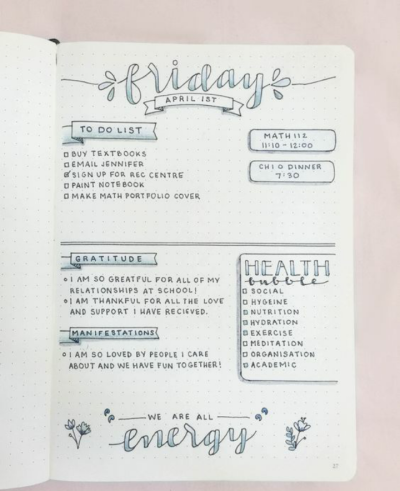 friday
APRIL 1ST
TO DO LIST
BUY TEXTBOOKS
EMAIL JENNIFER
SIGN UP FOR REC CENTRE
PAINT NOTEBOOK
MAKE MATH PORTFOLIO COVER
MATH 112
11:10 - 12:00
CHI O DINNER
7:30
GRATITUDE
I AM SO GREATFUL FOR ALL OF MY
RELATIONSHIPS AT SCHOOL!
I AM THANKFUL FOR ALL THE LOVE
AND SUPPORT I HAVE RECIEVED.
MANIFESTATIONS
I AM SO LOVED BY PEOPLE I CARE
ABOUT AND WE HAVE FUN TOGETHER!
HEALTH
bubble
SOCIAL
HYGEINE
NUTRITION
HYDRATION
EXERCISE
MEDITATION
ORGANISATION
ACADEMIC
WE ARE ALL
energy